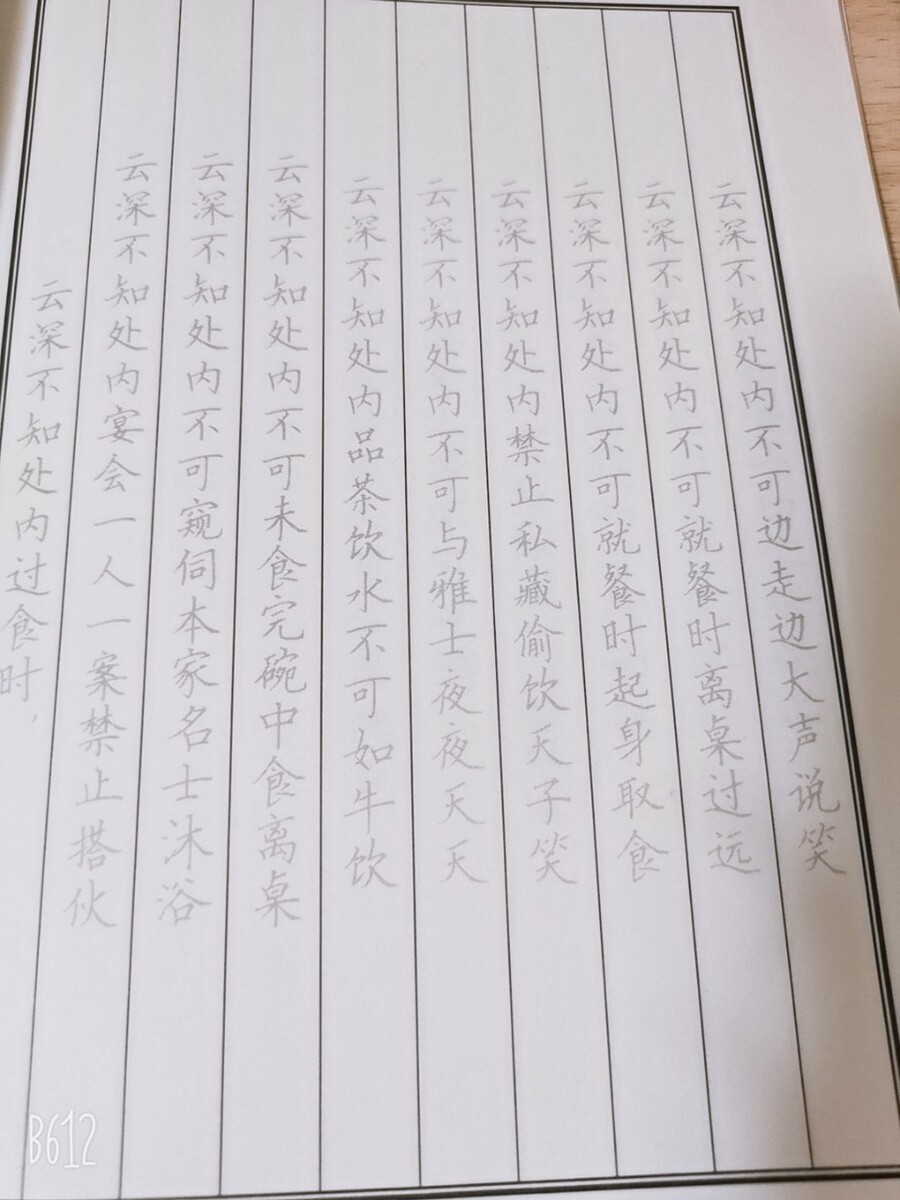 云深不知处内不可边走边大声说笑
云深不知处内不可就餐时离桌过远
云深不知处内不可就餐时起身取食
云深不知处内禁止私藏偷饮天子笑
云深不知处内不可与雅士夜夜天天
云深不知处内品茶饮水不可如牛饮
云深不知处内不可未食完碗中食离桌
云深不知处内不可窥伺本家名士沐浴
云深不知处内宴会一人一案禁止搭伙
云深不知处内过食时，
B612